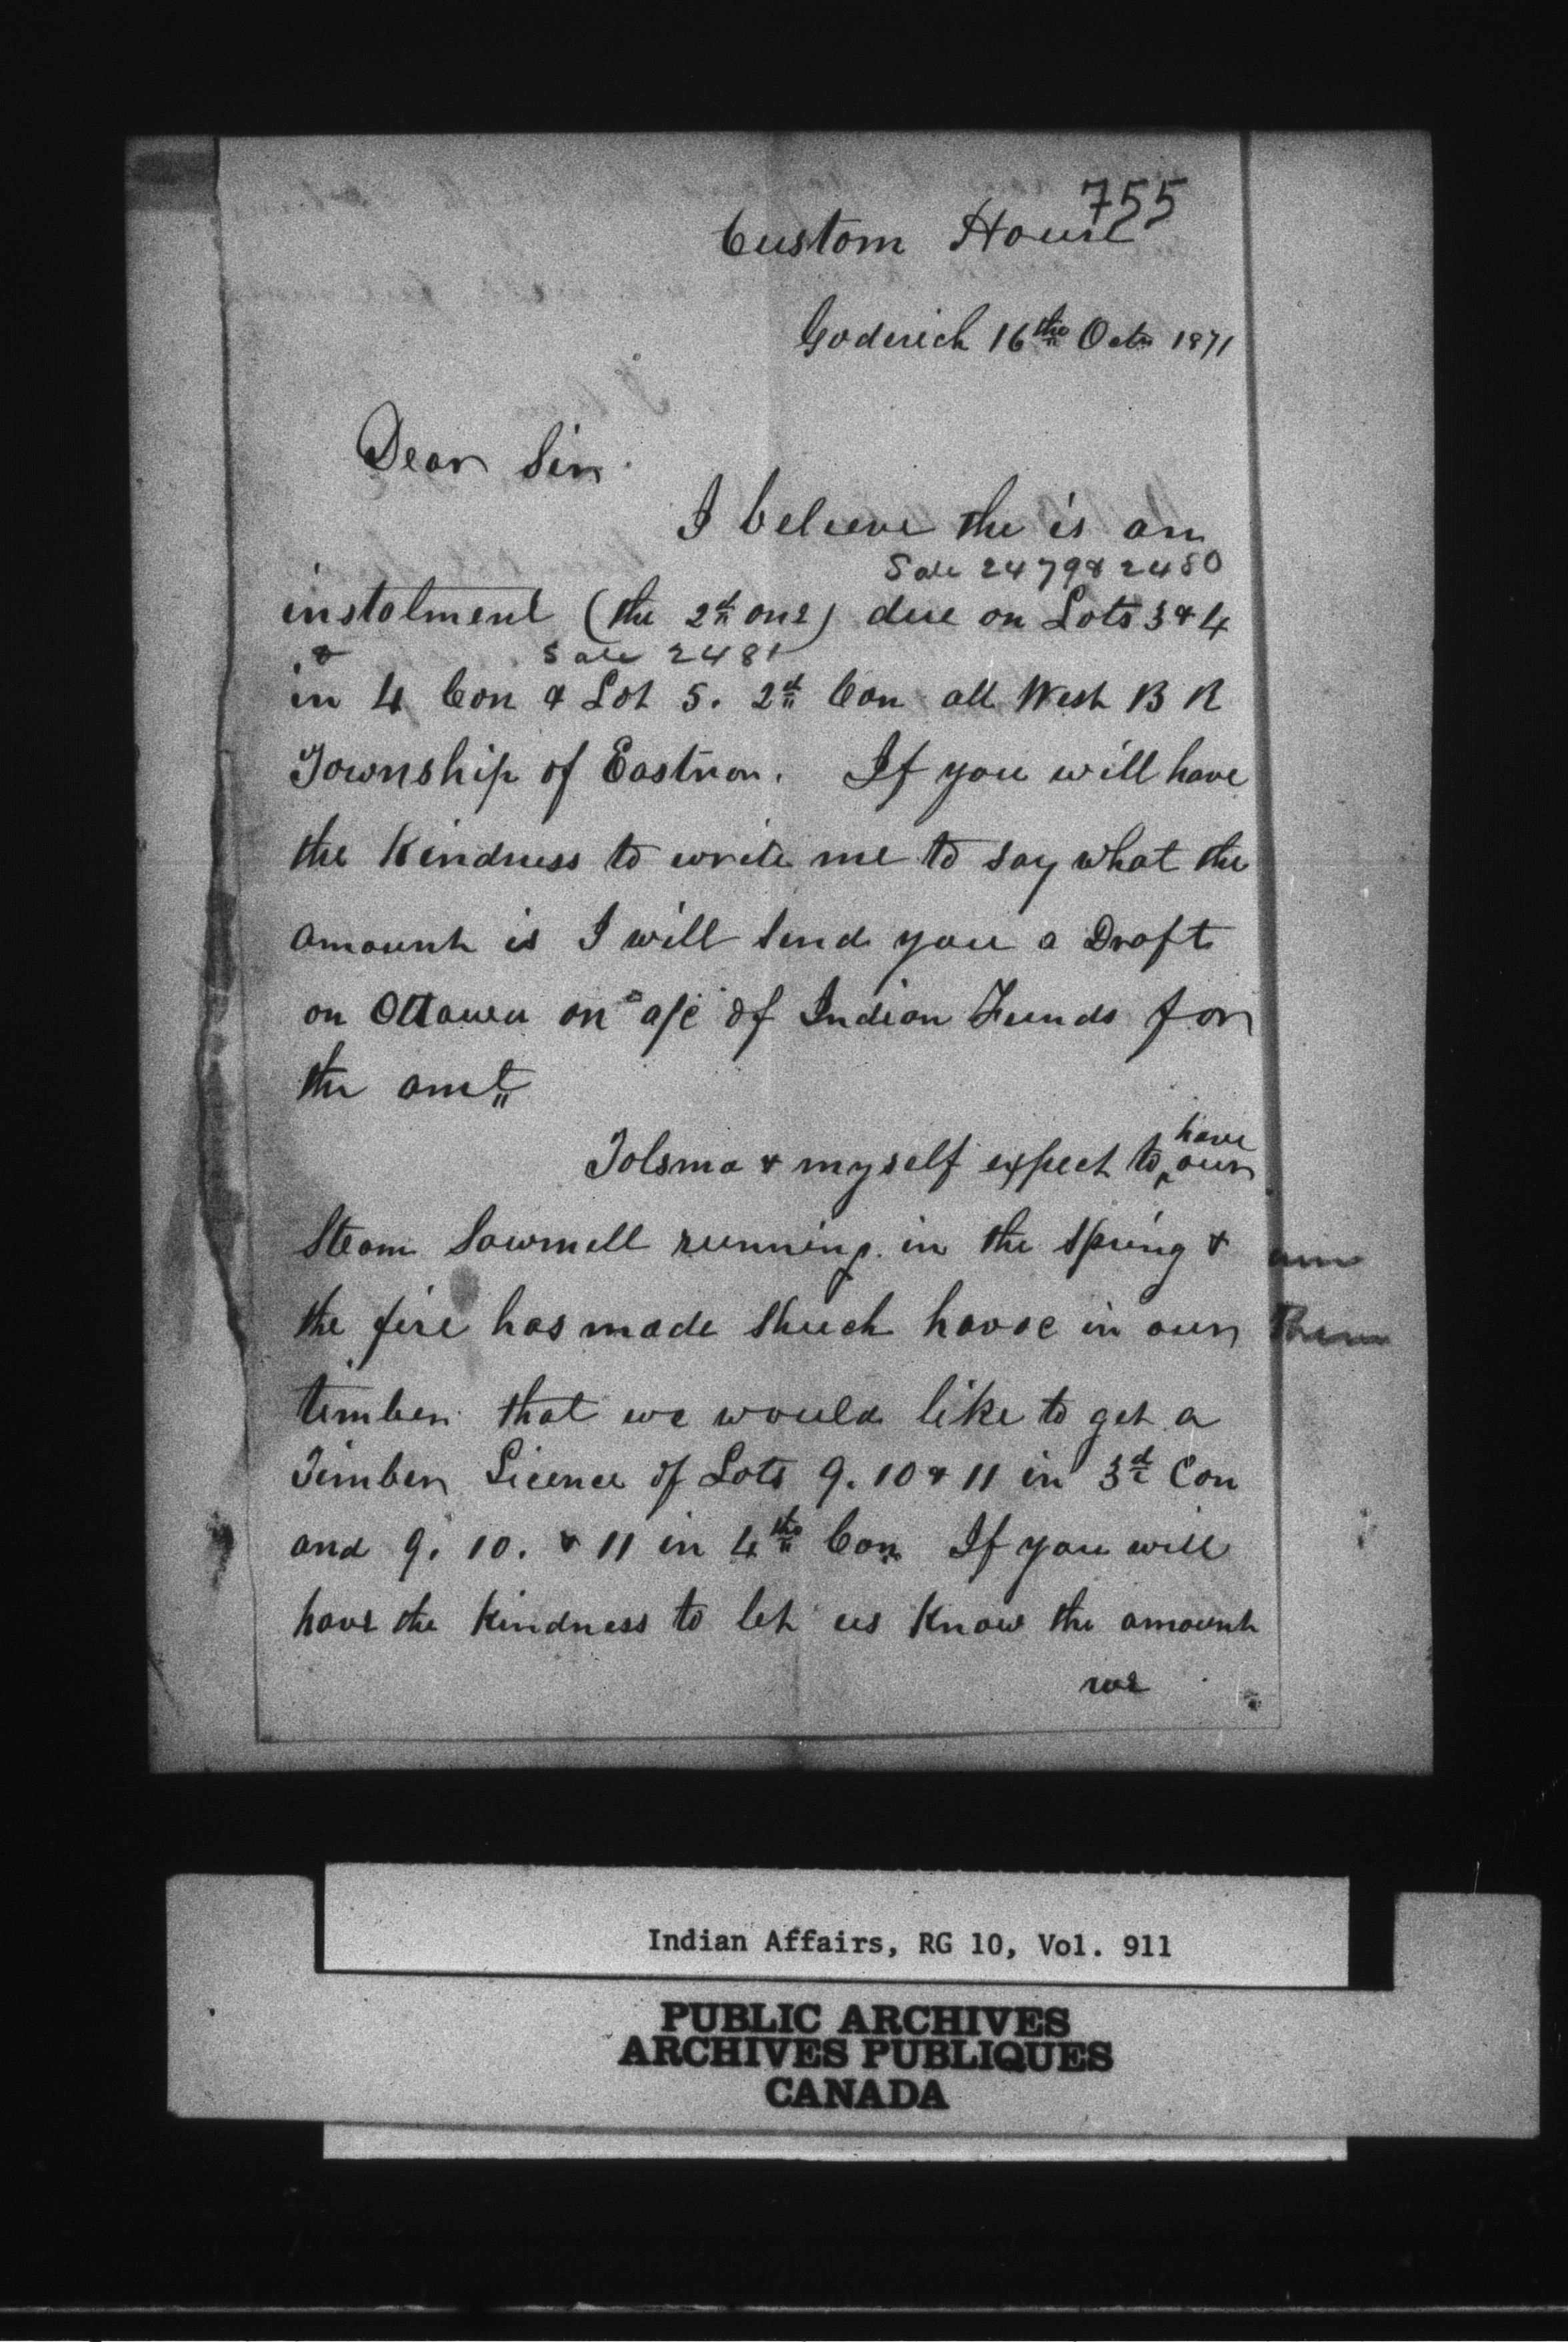 755
Custom House
Goderich 16th Octr 1871
Dear Sir
I believe the is an
Sale 2479 & 2480
instalment (the 2d one) due on Lots 3 & 4
& Sale 2481
in 4 Con & Lot 5. 2d Con all West B R
Township of Eastnor. If you will have
the Kindness to write me to say what the
amount is I will send you a Draft
on Ottawa on a/c of Indian Funds for
the amt
have
Tolsma & myself expect to ^ our
Steam Sawmill running in the Spring &
the fire has made shuch havoc in our
timber that we would like to get a
Timber Licence of Lots 9. 10 & 11 in 3d Con
and 9. 10. & 11 in 4th Con If you will
have the Kindness to let us Know the amount
we
Indian Affairs, RG 10, Vol. 911
PUBLIC ARCHIVES
ARCHIVES PUBLIQUES
CANADA